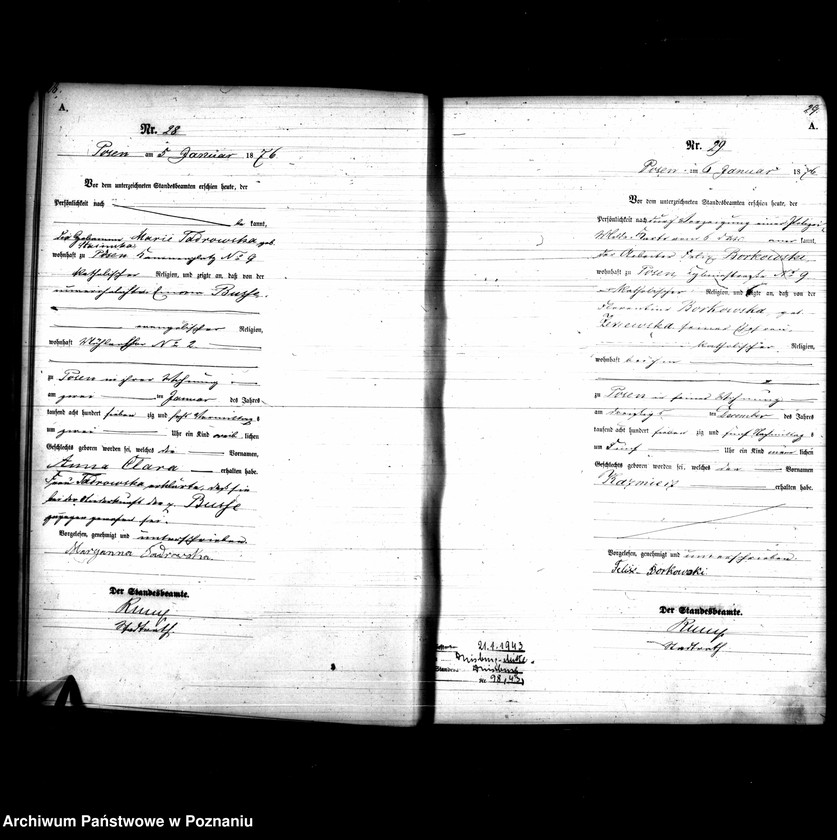 A.
Nr. 28
Posen am 5 Januar 1876
Vor dem unterzeichneten Standesbeamten erschien heute, der
Persönlichkeit nach
kannt,
die Hebamme Marie Tadrowska geb.
wohnhaft zu Posen No 9
katholischer Religion, und zeigte an, daß von der
unverehelichten Busse
evangelischer Religion,
wohnhaft No 2
zu Posen in ihrer Wohnung
am zwei ten Januar des Jahres
tausend acht hundert sieben zig und sechs Vormittags
um zwei Uhr ein Kind weib lichen
Geschlechts geboren worden sei, welches die Vornamen
Anna Clara erhalten habe.
Frau Tadrowska erklärte, daß sie
bei der Niederkunft der Busse
zugegen gewesen sei.
Vorgelesen, genehmigt und unterschrieben
Maryanna Tadrowska
Der Standesbeamte.
Stadtrath
29.
A.
Nr. 29
Posen am 6 Januar 1876
Vor dem unterzeichneten Standesbeamten erschien heute, der
Persönlichkeit nach durch
kannt,
der Arbeiter Felix Borkowski
wohnhaft zu Posen No 9
katholischer Religion, und zeigte an, daß von der
Florentine Borkowska geb.
seiner Ehefrau
katholischer Religion,
wohnhaft bei ihm
zu Posen in seiner Wohnung
am ten December des Jahres
tausend acht hundert sieben zig und fünf Nachmittags
um fünf Uhr ein Kind männ lichen
Geschlechts geboren worden sei, welches den Vornamen
Kazmierz erhalten habe.
Vorgelesen, genehmigt und unterschrieben
Felix Borkowski
Der Standesbeamte.
Stadtrath
21.1.1943
Duisburg-Mitte
Duisburg
98/43
Archiwum Państwowe w Poznaniu